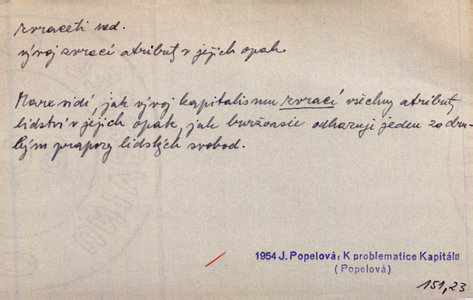 zvraceti ned.
vývoj zvrací atributy v jejich opak
Marx vidí, jak vývoj kapitalismu zvrací všechny atributy
lidství v jejich opak, jak buržoasie odhazují jeden za dru-
hým prapory lidských svobod.
1954 J. Popelová: K problematice Kapitálu
(Popelová)
151,23